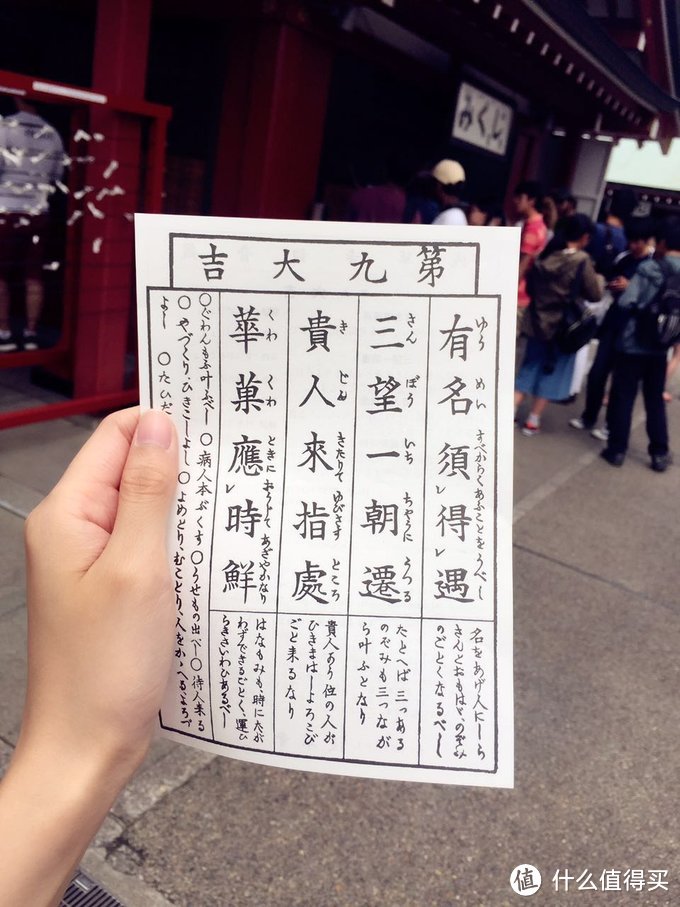 みくじ
第九大吉
有名須レ得レ遇
ゆう めい すべからくあふことをうべし
名をあげ人にしら
さんとおもはゞ、のぞみ
のごとくなるべし
三望一朝遷
さん ぼう いち ちやうに うつる
たとへば三つある
のぞみも三つなが
ら叶ふとなり
貴人來指處
き じん きたりて ゆびさす ところ
貴人あり位の人が
ひきまはしよろこび
ごと来るなり
華菓應レ時鮮
くわ くわ ときに おうじて あざやかなり
はなもみも、時にたが
わずできるごとく、運ひ
らきさいわひあるべし
○ぐわんもふ叶ふべし ○病人本ぷくす ○うせもの出べし ○待人来る
○やづくり、ひきこしよし ○よめとり、むことり、人をかゝへる、よろづ
よし ○たびだ
值 什么值得买